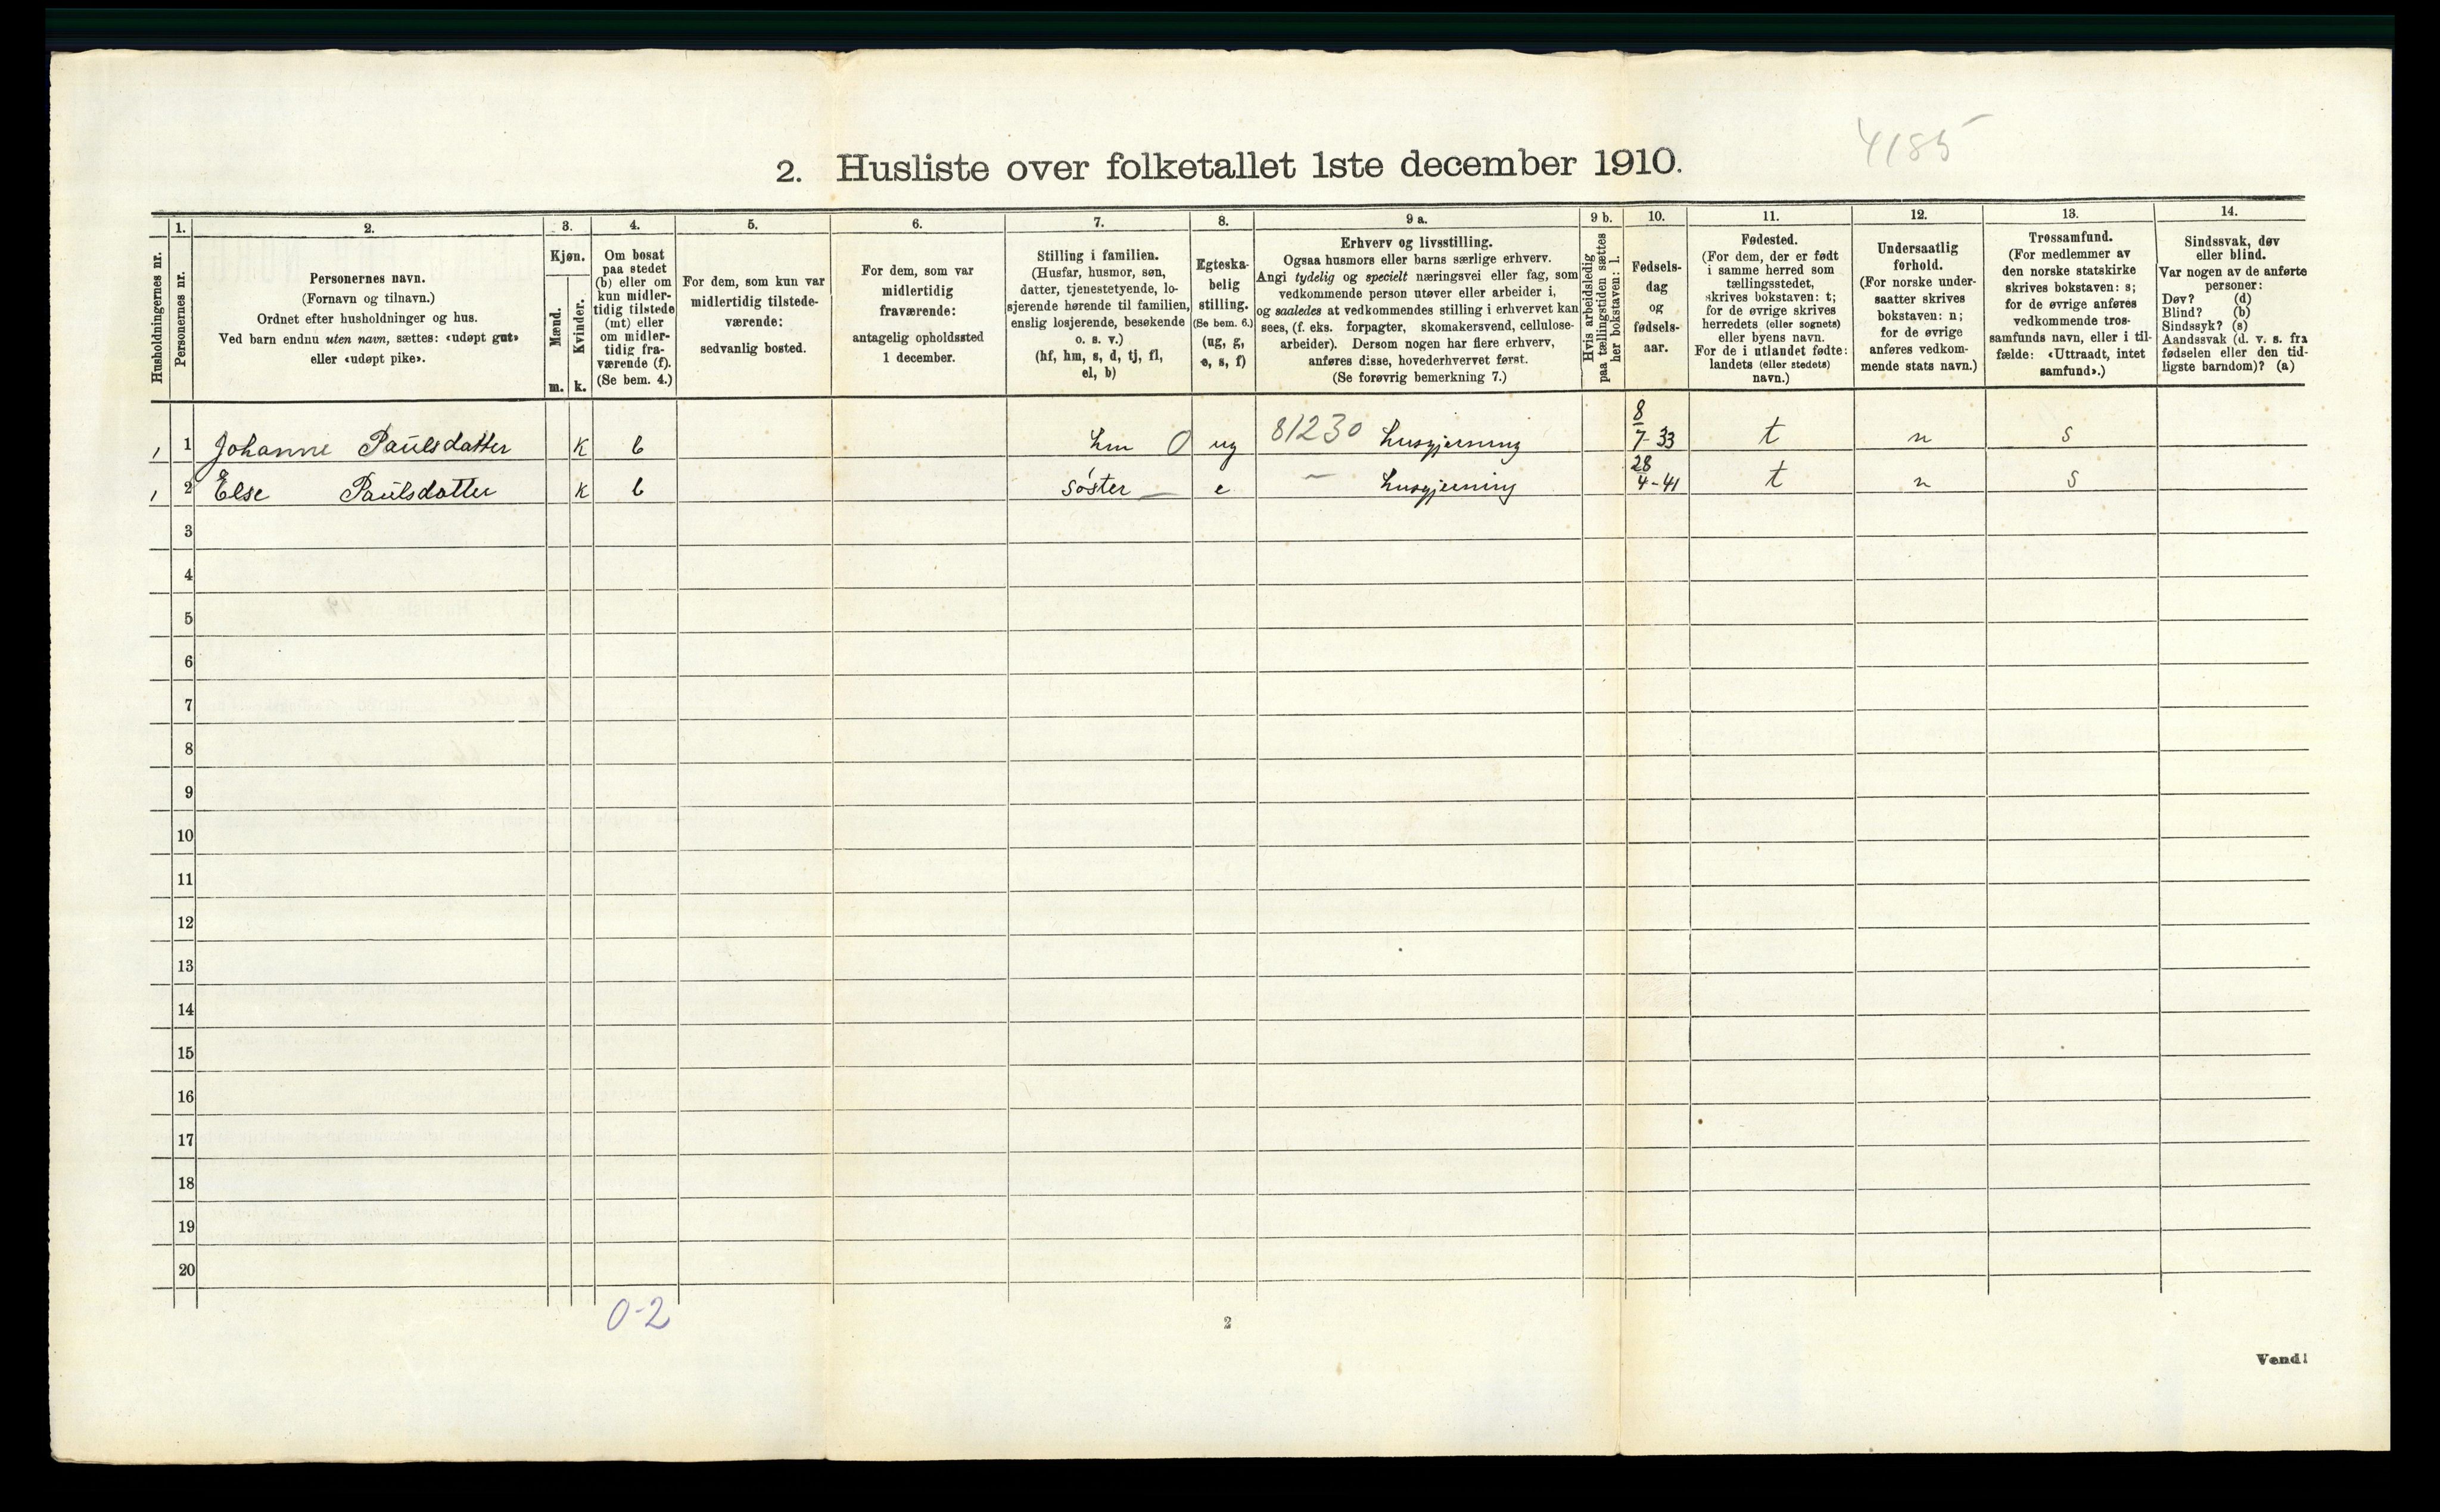 4185
2. Husliste over folketallet 1ste december 1910.
Husholdningernes nr.
1.
Personernes nr.
2.
Personernes navn.
(Fornavn og tilnavn.)
Ordnet efter husholdninger og hus.
Ved barn endnu uten navn, sættes: «udøpt gut»
eller «udøpt pike».
3.
Kjøn.
Mænd.
m.
Kvinder.
k.
4.
Om bosat
paa stedet
(b) eller om
kun midler-
tidig tilstede
(mt) eller
om midler-
tidig fra-
værende (f).
(Se bem. 4.)
5.
For dem, som kun var
midlertidig tilstede-
værende:
sedvanlig bosted.
6.
For dem, som var
midlertidig
fraværende:
antagelig opholdssted
1 december.
7.
Stilling i familien.
(Husfar, husmor, søn,
datter, tjenestetyende, lo-
sjerende hørende til familien,
enslig losjerende, besøkende
o. s. v.)
(hf, hm, s, d, tj, fl,
el, b)
8.
Egteska-
belig
stilling.
(Se bem. 6.)
(ug, g,
e, s, f)
9 a.
Erhverv og livsstilling.
Ogsaa husmors eller barns særlige erhverv.
Angi tydelig og specielt næringsvei eller fag, som
vedkommende person utøver eller arbeider i,
og saaledes at vedkommendes stilling i erhvervet kan
sees, (f. eks. forpagter, skomakersvend, cellulose-
arbeider). Dersom nogen har flere erhverv,
anføres disse, hovederhvervet først.
(Se forøvrig bemerkning 7.)
9 b.
Hvis arbeidsledig
paa tællingstiden sættes
her bokstaven: l.
10.
Fødsels-
dag
og
fødsels-
aar.
11.
Fødested.
(For dem, der er født
i samme herred som
tællingsstedet,
skrives bokstaven: t;
for de øvrige skrives
herredets (eller sognets)
eller byens navn.
For de i utlandet fødte:
landets (eller stedets)
navn.)
12.
Undersaatlig
forhold.
(For norske under-
saatter skrives
bokstaven: n;
for de øvrige
anføres vedkom-
mende stats navn.)
13.
Trossamfund.
(For medlemmer av
den norske statskirke
skrives bokstaven: s;
for de øvrige anføres
vedkommende tros-
samfunds navn, eller i til-
fælde: «Uttraadt, intet
samfund».)
14.
Sindssvak, døv
eller blind.
Var nogen av de anførte
personer:
Døv? (d)
Blind? (b)
Sindssyk? (s)
Aandssvak (d. v. s. fra
fødselen eller den tid-
ligste barndom)? (a)
1 1 Johanne Paulsdatter K b hm 0 ug 81230 husgjerning 8/7-33 t n s
1 2 Else Paulsdatter K b søster — e — husgjerning 28/4-41 t n s
3
4
5
6
7
8
9
10
11
12
13
14
15
16
17
18
19
20
0-2
2
Vend!